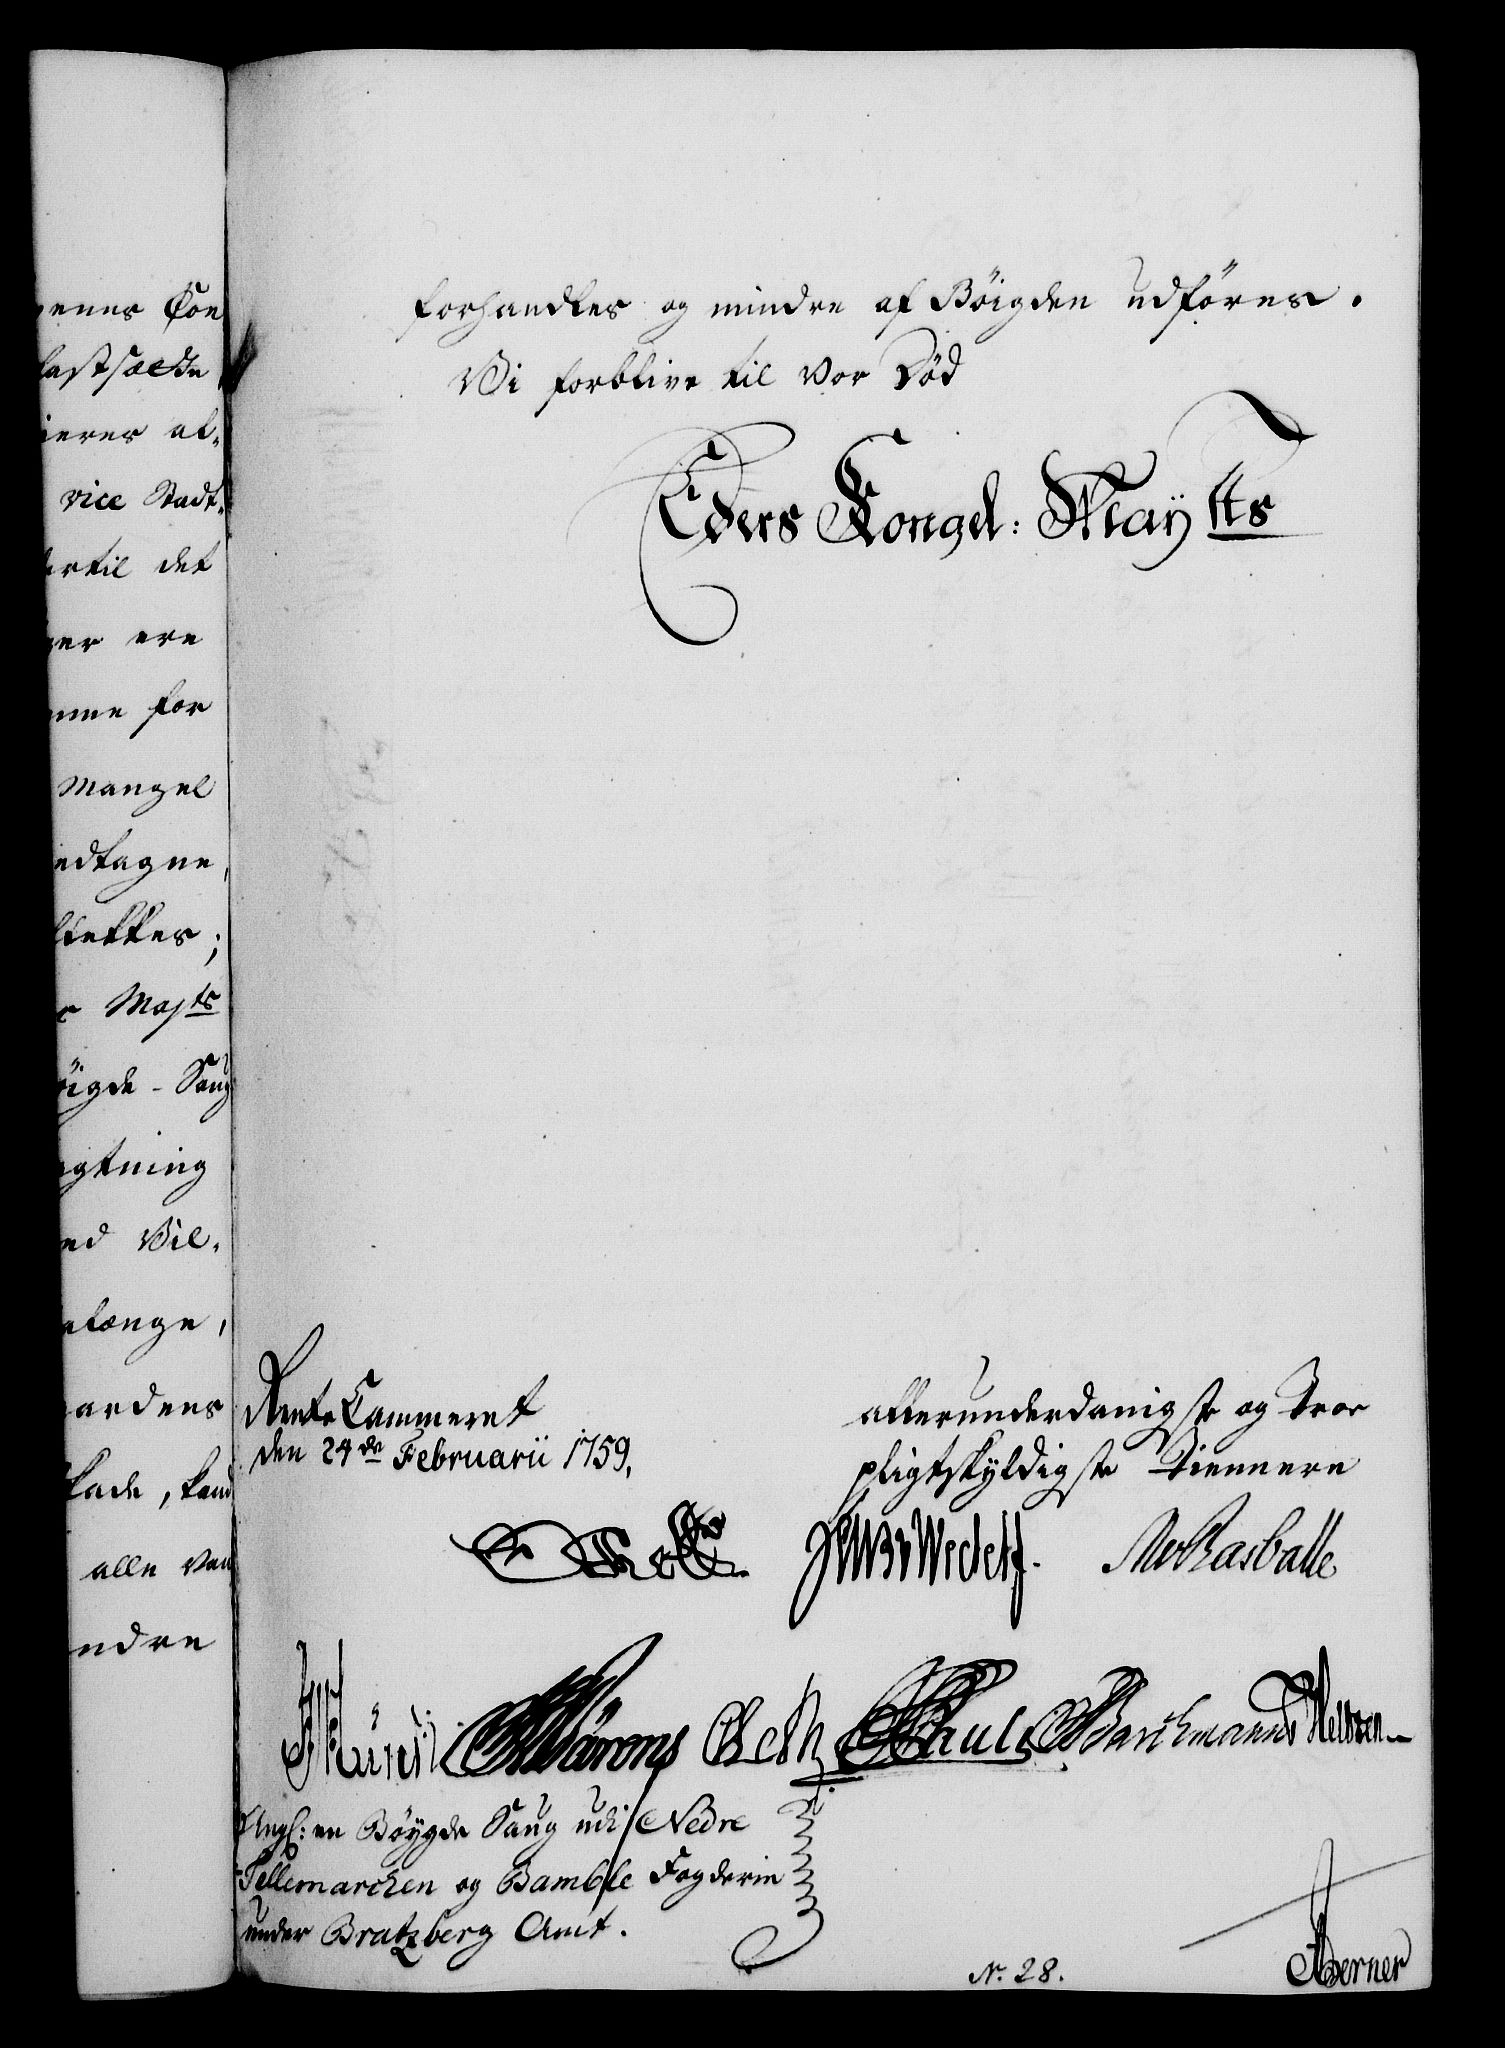 enes Con
fastsætte
ieres al-
vice Stadt-
ertil det
ger ere
mme for
Mangel
edtagne,
lfekkes;
r Majts
öigde-Saug
gtning
ed Vil-
elænge,
aardens
kade, kand
alle van
ndre
forhandles og mindre af Böigden udföres.
Vi forblive til vor Död
Eders Kongel: Mayts
Rente Cammeret
den 24de Februarii 1759.
allerunderdanigste og Troe
pligtskyldigste Tiennere
Wedell. Rasballe
Wärons Barchmann Nelssen
Ang: en Böygde Saug udi Nedre
Tellemarchen og Bamble Fogderie
under Bratzberg Amt.
No. 28.
Berner